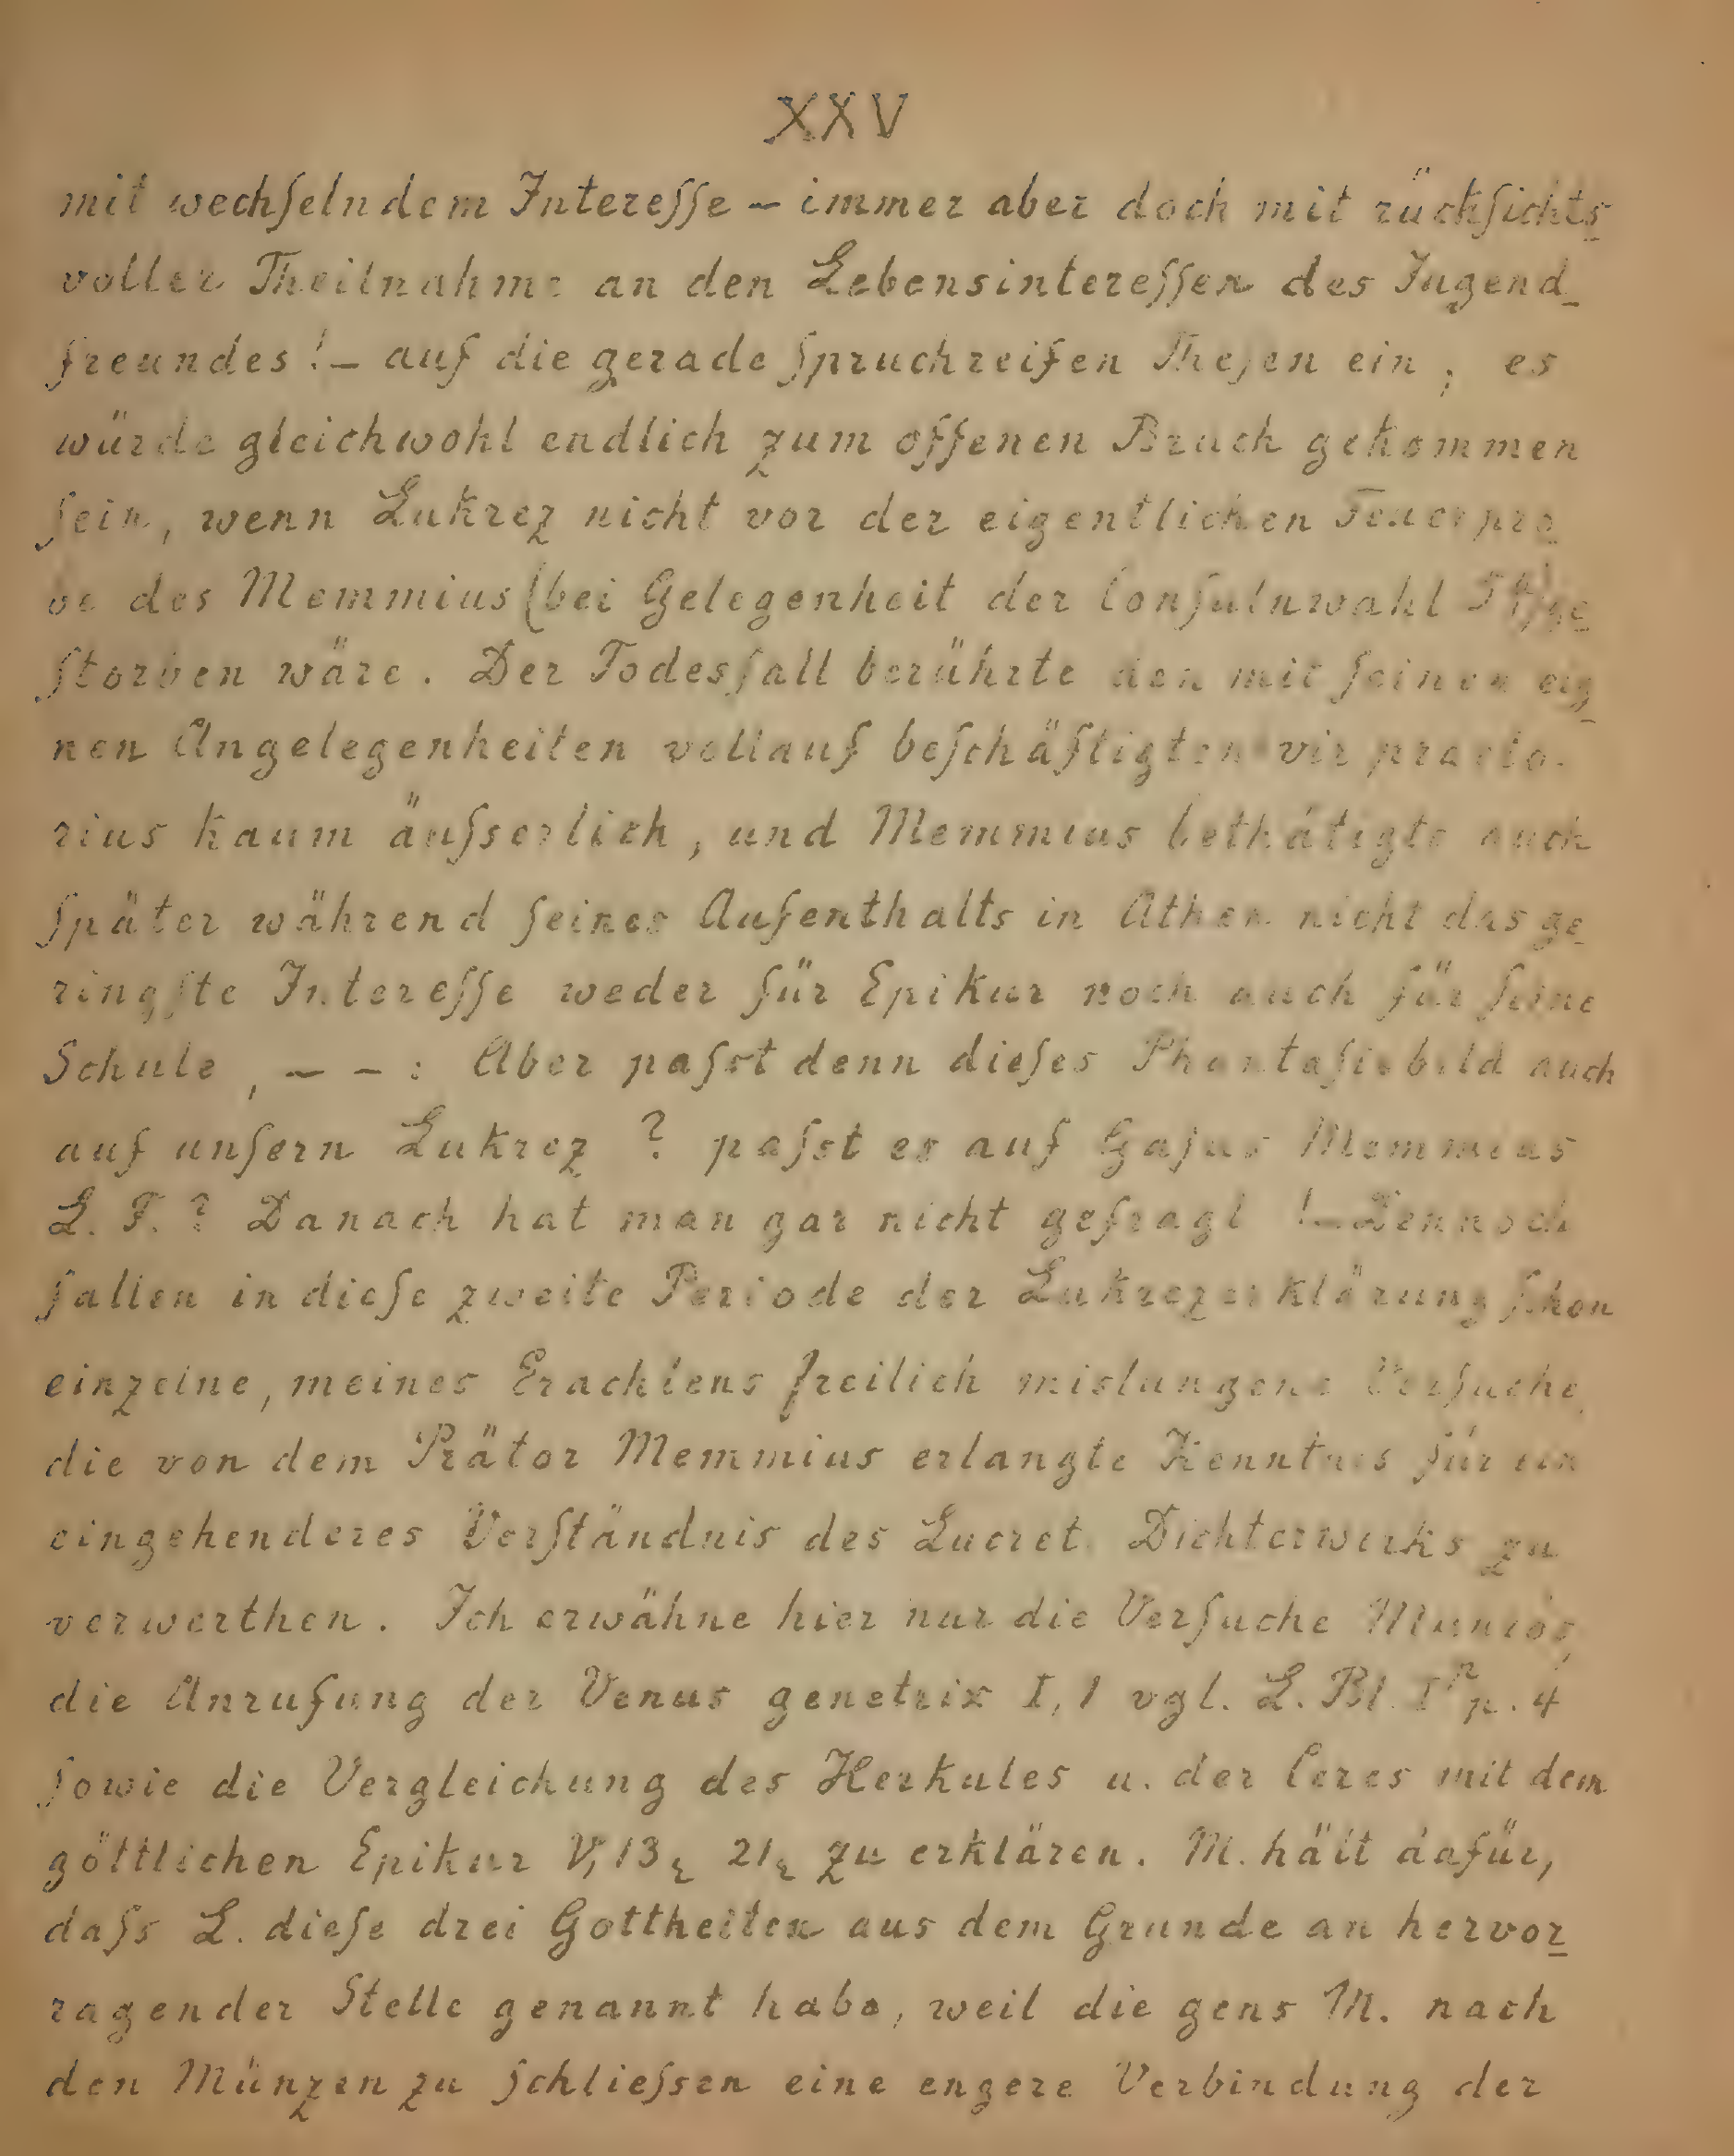 XXV
mit wechſelndem Intereſſe – immer aber doch mit rückſichts-
voller Theilnahme an den Lebensintereſſen des Jugend-
freundes! – auf die gerade ſpruchreifen Theſen ein; es
würde gleichwohl endlich zum offenen Bruch gekommen
ſein, wenn Lukrez nicht vor der eigentlichen Feuerpro-
be des Memmius (bei Gelegenheit der Conſulnwahl 54) ge-
ſtorben wäre. Der Todesfall berührte den mit ſeinen eig-
nen Angelegenheiten vollauf beſchäftigten vir praeto-
rius kaum äuſserlich, und Memmius bethätigte auch
ſpäter während ſeines Aufenthalts in Athen nicht das ge-
ringſte Intereſſe weder für Epikur noch auch für ſeine
Schule, – – : Aber paſst denn dieſes Phantaſiebild auch
auf unſern Lukrez? paſst es auf Gajus Memmius
L. F.? Danach hat man gar nicht gefragt! – Dennoch
fallen in dieſe zweite Periode der Lukrezerklärung ſchon
einzelne, meines Erachtens freilich mislungene Verſuche,
die von dem Prätor Memmius erlangte Kenntnis für ein
eingehenderes Verſtändnis des Lucret. Dichterwerks zu
verwerthen. Ich erwähne hier nur die Verſuche Munros,
die Anrufung der Venus genetrix I, 1 vgl. L. Bl. I p. 4
ſowie die Vergleichung des Herkules u. der Ceres mit dem
göttlichen Epikur V, 13 21 zu erklären. M. hält dafür,
daſs L. dieſe drei Gottheiten aus dem Grunde an hervor-
ragender Stelle genannt habe, weil die gens M. nach
den Münzen zu ſchlieſsen eine engere Verbindung der